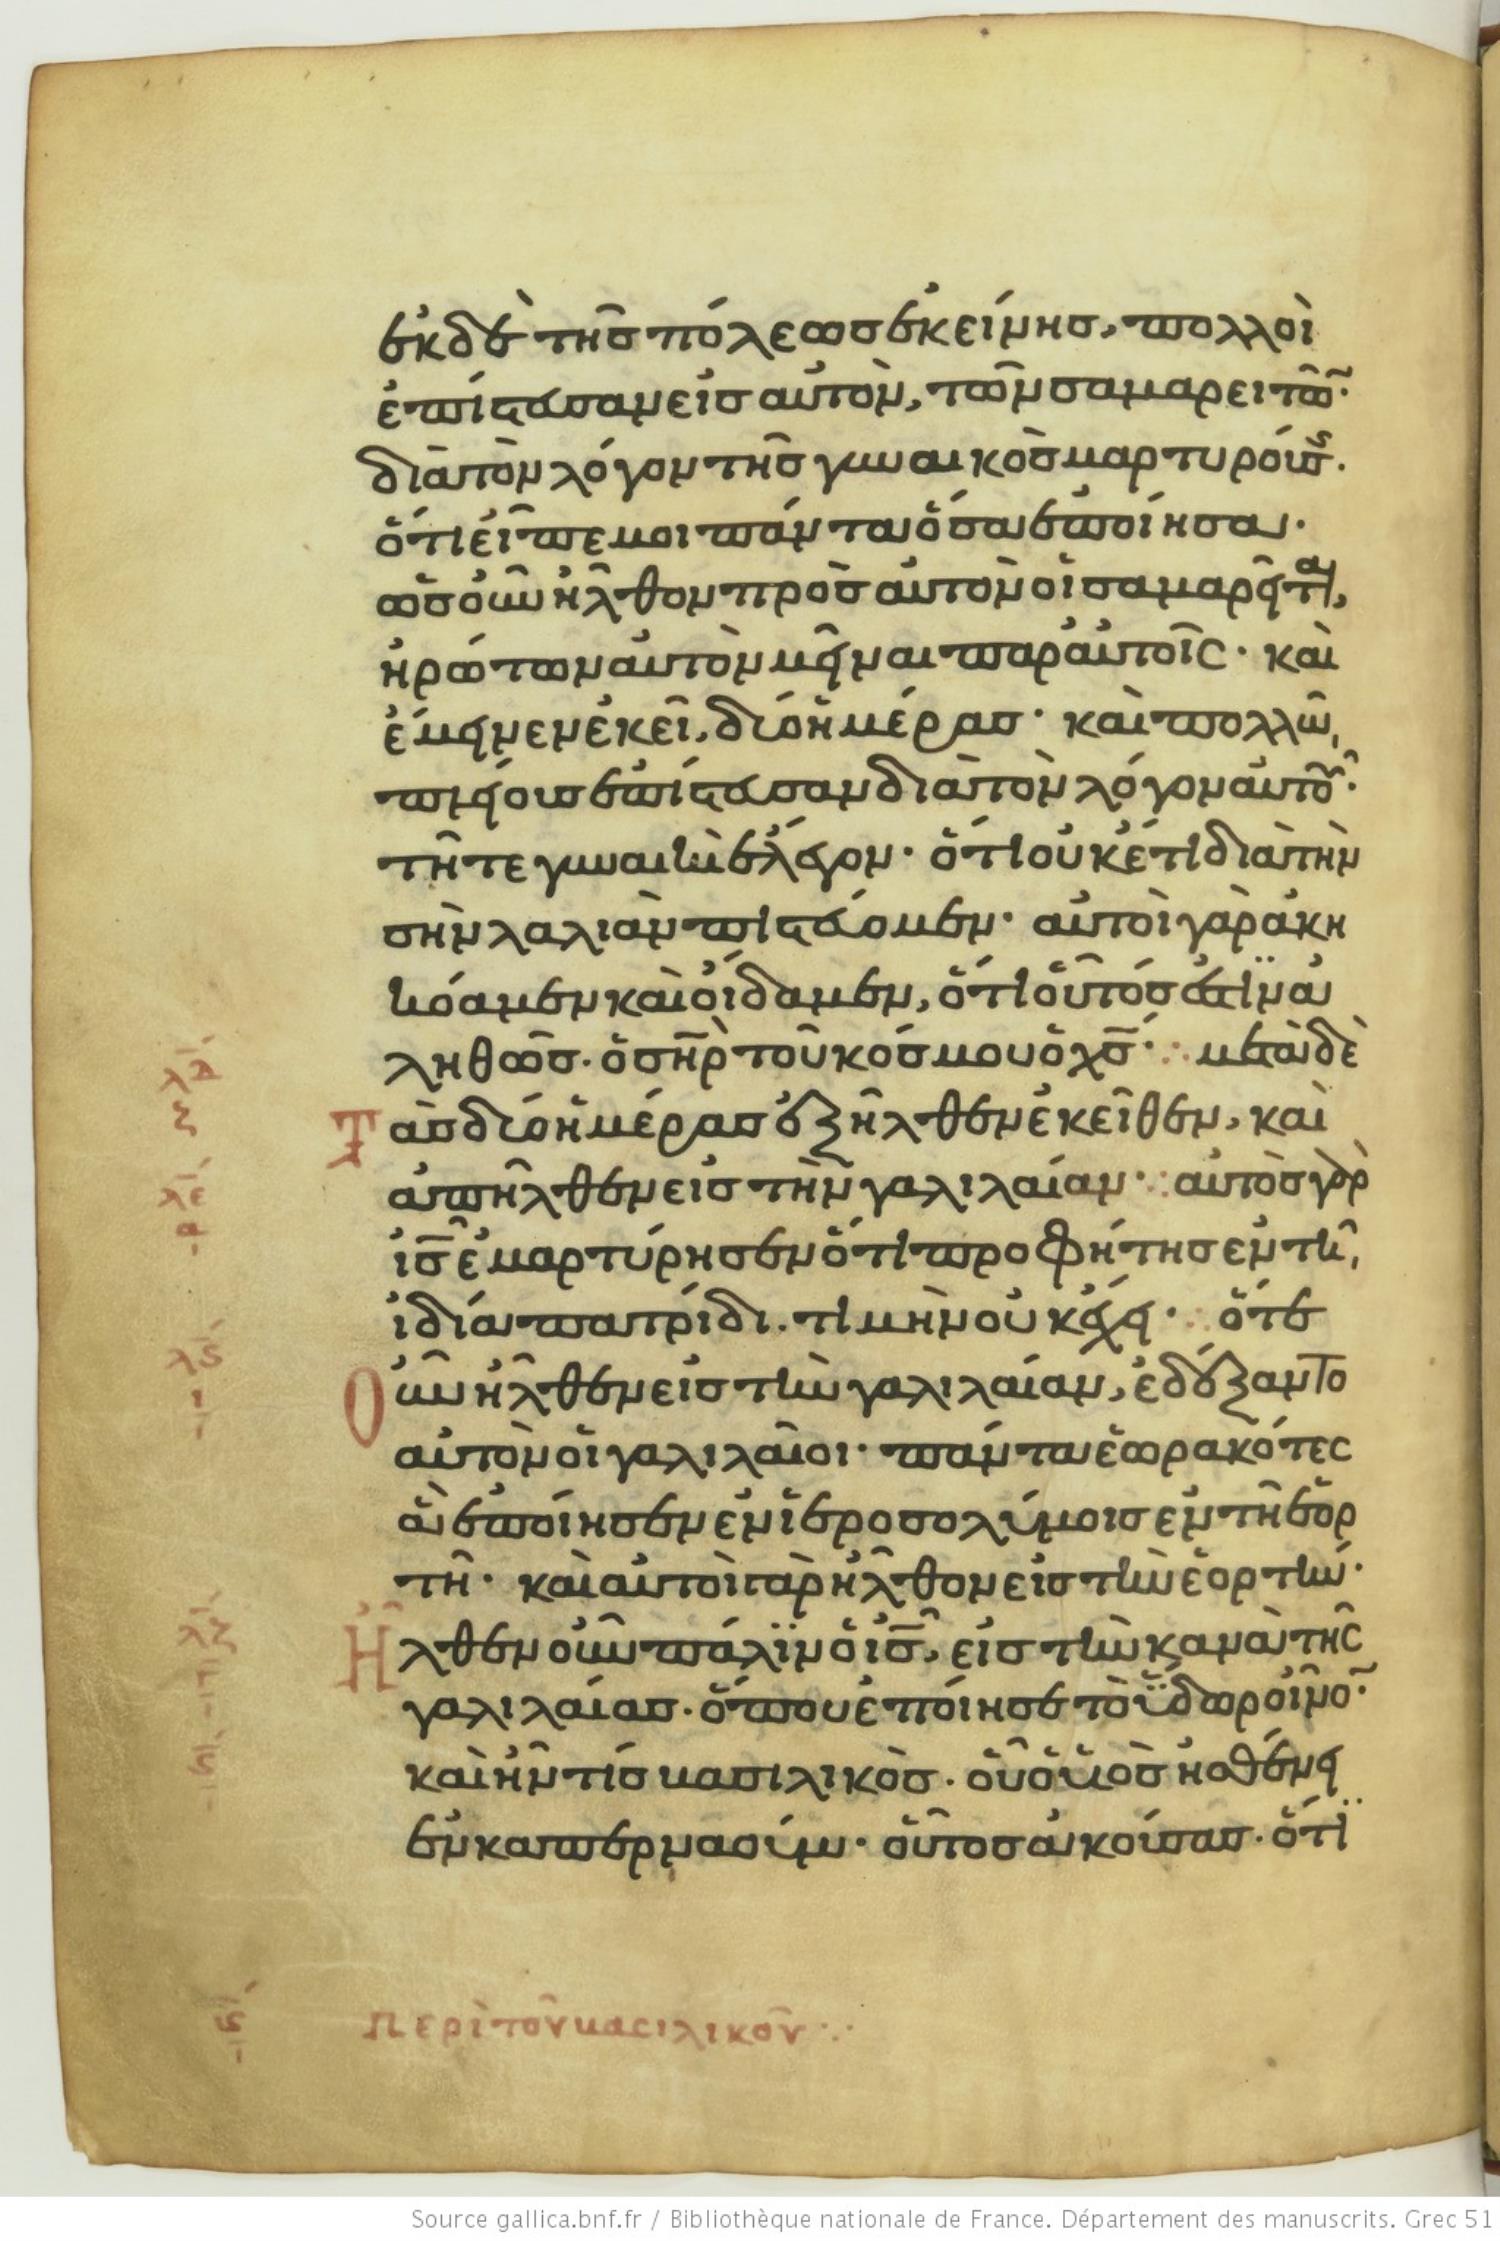 ἐκ δὲ τῆς πόλεως ἐκείνης, πολλοὶ
ἐπίστευσαν εἰς αὐτὸν, τῶν σαμαρειτῶ̅·
διὰ τὸν λόγον τῆς γυναικὸς μαρτυρούσης·
ὅτι εἶπε μοι πάντα ὅσα ἐποίησα·
ὡς οὖν ἦλθον πρὸς αὐτὸν οἱ σαμαρεῖται,
ἠρώτων αὐτὸν μεῖναι παρ' αὐτοῖς· καὶ
ἔμεινεν ἐκεῖ, δύο ἡμέρας· καὶ πολλῶ,
πλείους ἐπίστευσαν διὰ τὸν λόγον αὐτοῦ·
τῆ τε γυναικὶ ἔλεγον· ὅτι οὐκέτι διὰ τὴν
σὴν λαλιὰν πιστεύομεν· αὐτοὶ γὰρ ἀκη
κόαμεν καὶ οἴδαμεν, ὅτι οὗτός ἐστϊν ἀ
ληθῶς· ὁ σ̅η̅ρ̅ τοῦ κόσμου ὁ χ̅ς̅· μετὰ δὲ
Τ
λδ
ζ
τὰς δύο ἡμέρας ἐξῆλθεν ἐκεῖθεν, καὶ
λε
α
ἀπῆλθεν εἰς τὴν γαλιλαίαν· αὐτὸς γὰρ
ἰ̅ς̅ ἐμαρτύρησεν ὅτι προφήτης ἐν τῆ,
ἰδία πατρίδι· τιμὴν οὐκ ἔχει· ὅτε
λς
ι
Ο
οὖν ἦλθεν εἰς τὴν γαλιλαίαν, ἐδέξαντο
αὐτὸν οἱ γαλιλαῖοι· πάντα ἑωρακότες
ἃ ἐποίησεν ἐν ἱεροσολύμοις ἐν τῆ ἑορ
τῆ· καὶ αὐτοὶ γὰρ ἦλθον εἰς τὴν ἑορτήν·
λζ
Ἦλθεν οὖν πάλϊν ὁ ἰ̅ς̅, εἰς τὴν κανὰ τῆς
γαλιλαίας· ὅπου ἐποίησε τὸ ὕδωρ οἶνο̅·
καὶ ἦν τίς βασιλικὸς· οὗ ὁ υἱὸς ἠσθένει
ἐν καπερναούμ· οὗτος ἀκούσας· ὅτϊ
ϛ
περὶ τοῦ βασιλικοῦ